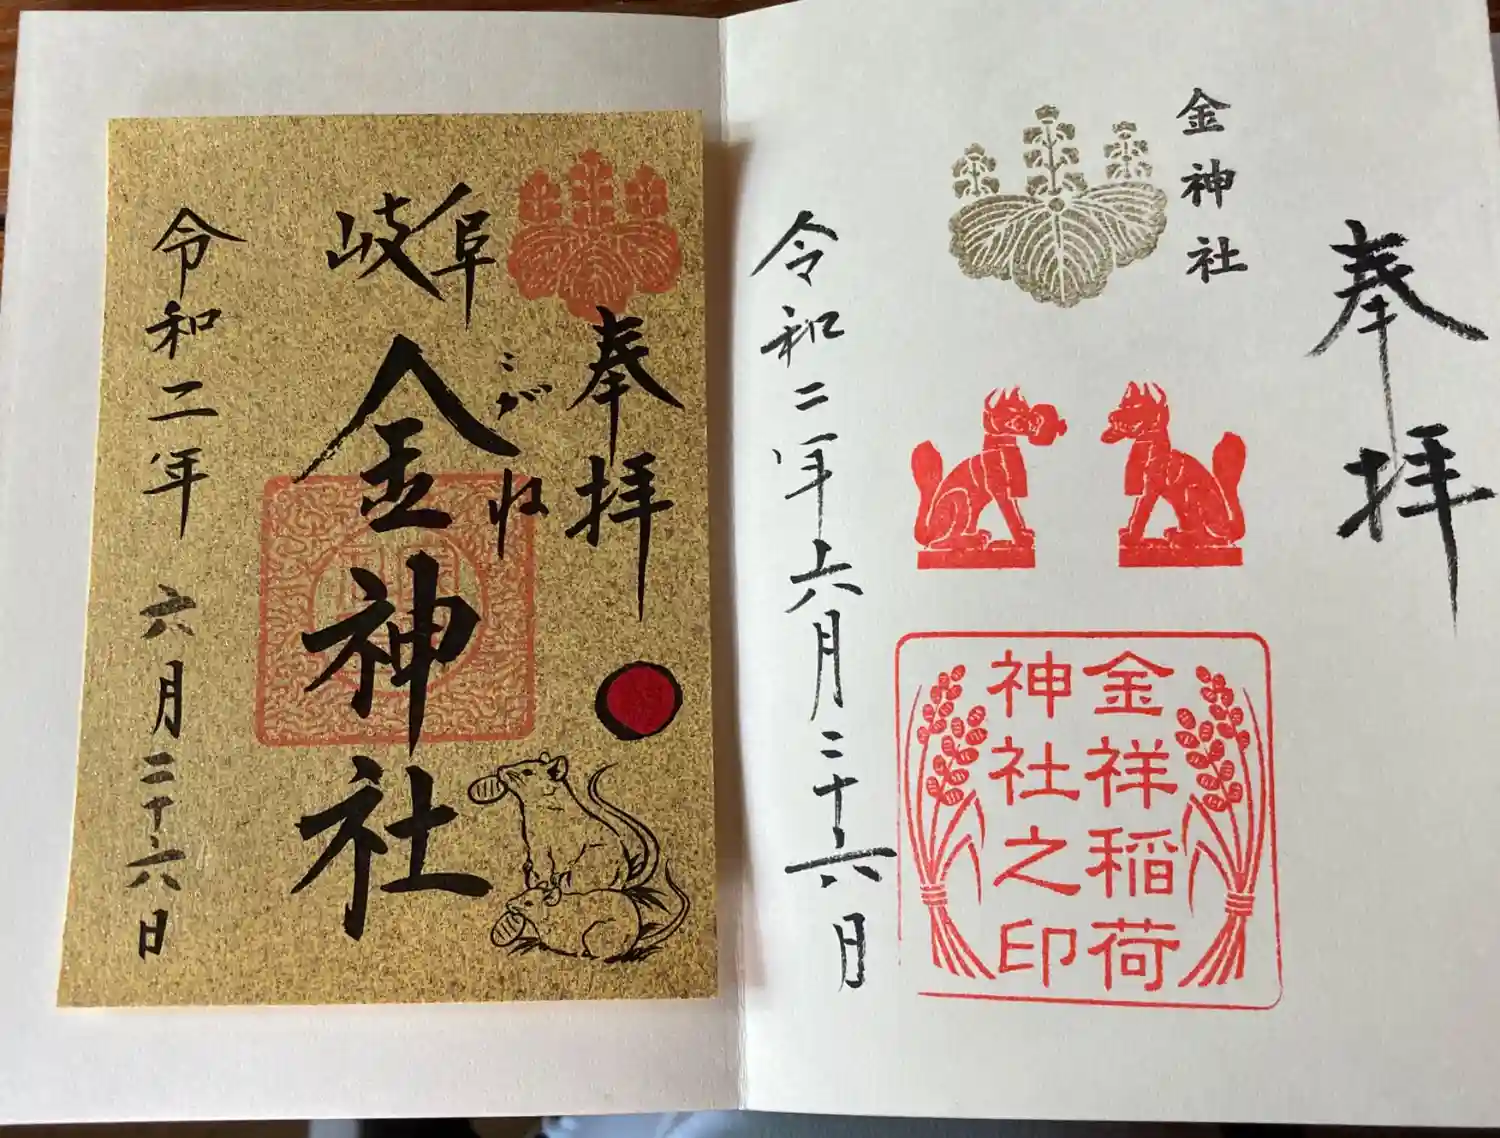 奉拝
金神社
金祥稲荷
神社之印
令和二年六月二十六日
奉拝
岐阜
こがね
金神社
令和二年六月二十六日